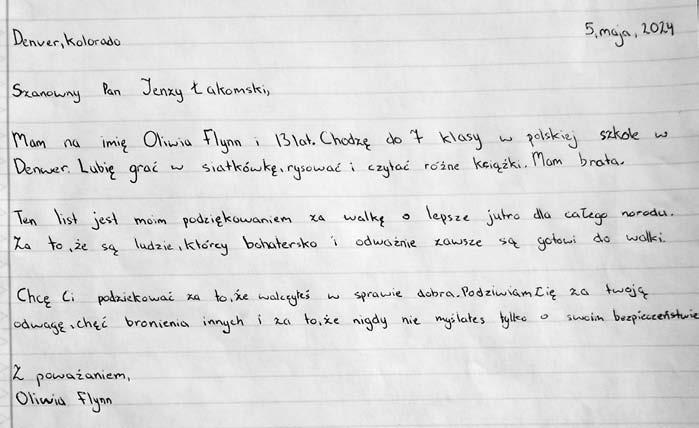 5, maja, 2024
Denver, Kolorado
Szanowny Pan Jenzy Łakomski,
Mam na imię Oliwia Flynn i 13 lat. Chodzę do 7 klasy w polskiej szkole w
Denwer. Lubię grać w siatkówkę, rysować i czytać różne książki. Mam brata.
Ten list jest moim podziękowaniem za walkę o lepsze jutro dla całego narodu.
Za to, że są ludzie, którcy bohatersko i odważnie zawsze są gotowi do walki.
Chcę Ci podziekować za to, że walczyłeś w sprawie dobra. Podziwiam Cię za twoją
odwagę, chęć bronienia innych i za to, że nigdy nie myślałes tylko o swoim bezpieczeństwie
Z poważaniem,
Oliwia Flynn